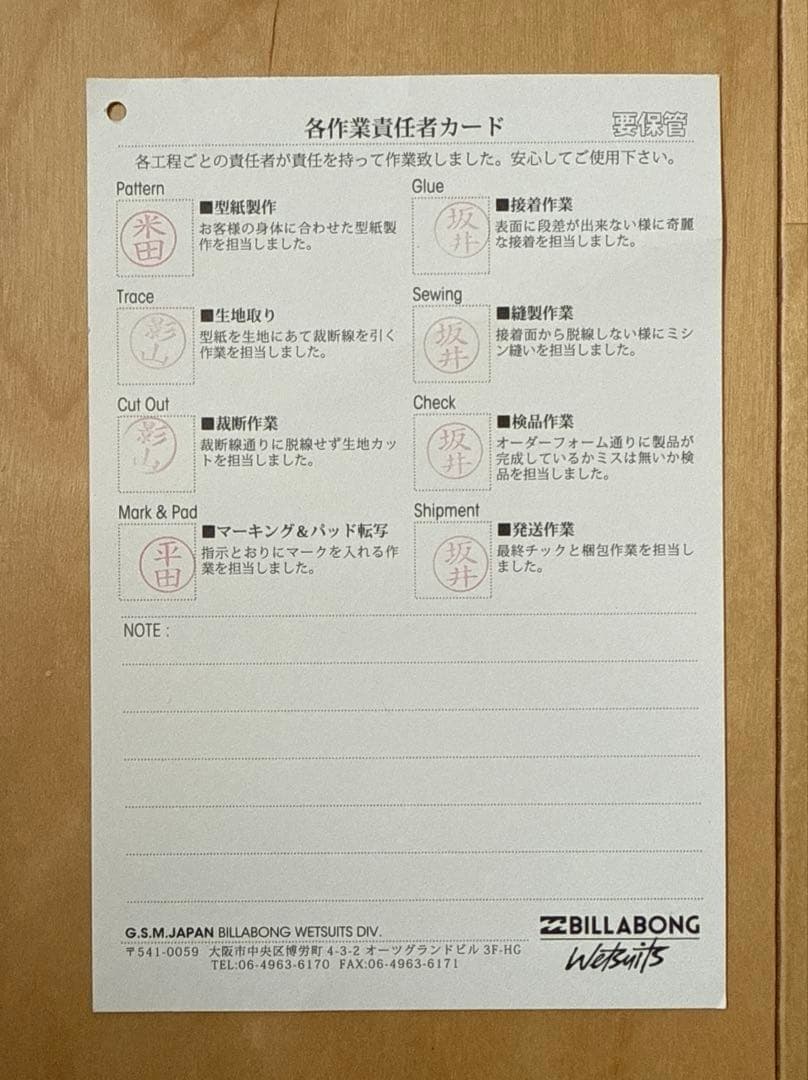 各作業責任者カード
要保管
各工程ごとの責任者が責任を持って作業致しました。安心してご使用下さい。
Pattern
米田
■型紙製作
お客様の身体に合わせた型紙製
作を担当しました。
Glue
坂井
■接着作業
表面に段差が出来ない様に奇麗
な接着を担当しました。
Trace
影山
■生地取り
型紙を生地にあて裁断線を引く
作業を担当しました。
Sewing
坂井
■縫製作業
接着面から脱線しない様にミシ
ン縫いを担当しました。
Cut Out
影山
■裁断作業
裁断線通りに脱線せず生地カッ
トを担当しました。
Check
坂井
■検品作業
オーダーフォーム通りに製品が
完成しているかミスは無いか検
品を担当しました。
Mark & Pad
平田
■マーキング&パッド転写
指示とおりにマークを入れる作
業を担当しました。
Shipment
坂井
■発送作業
最終チックと梱包作業を担当し
ました。
NOTE :
G.S.M.JAPAN BILLABONG WETSUITS DIV.
〒541-0059 大阪市中央区博労町 4-3-2 オーツグランドビル 3F-HG
TEL:06-4963-6170 FAX:06-4963-6171
BILLABONG
Wetsuits